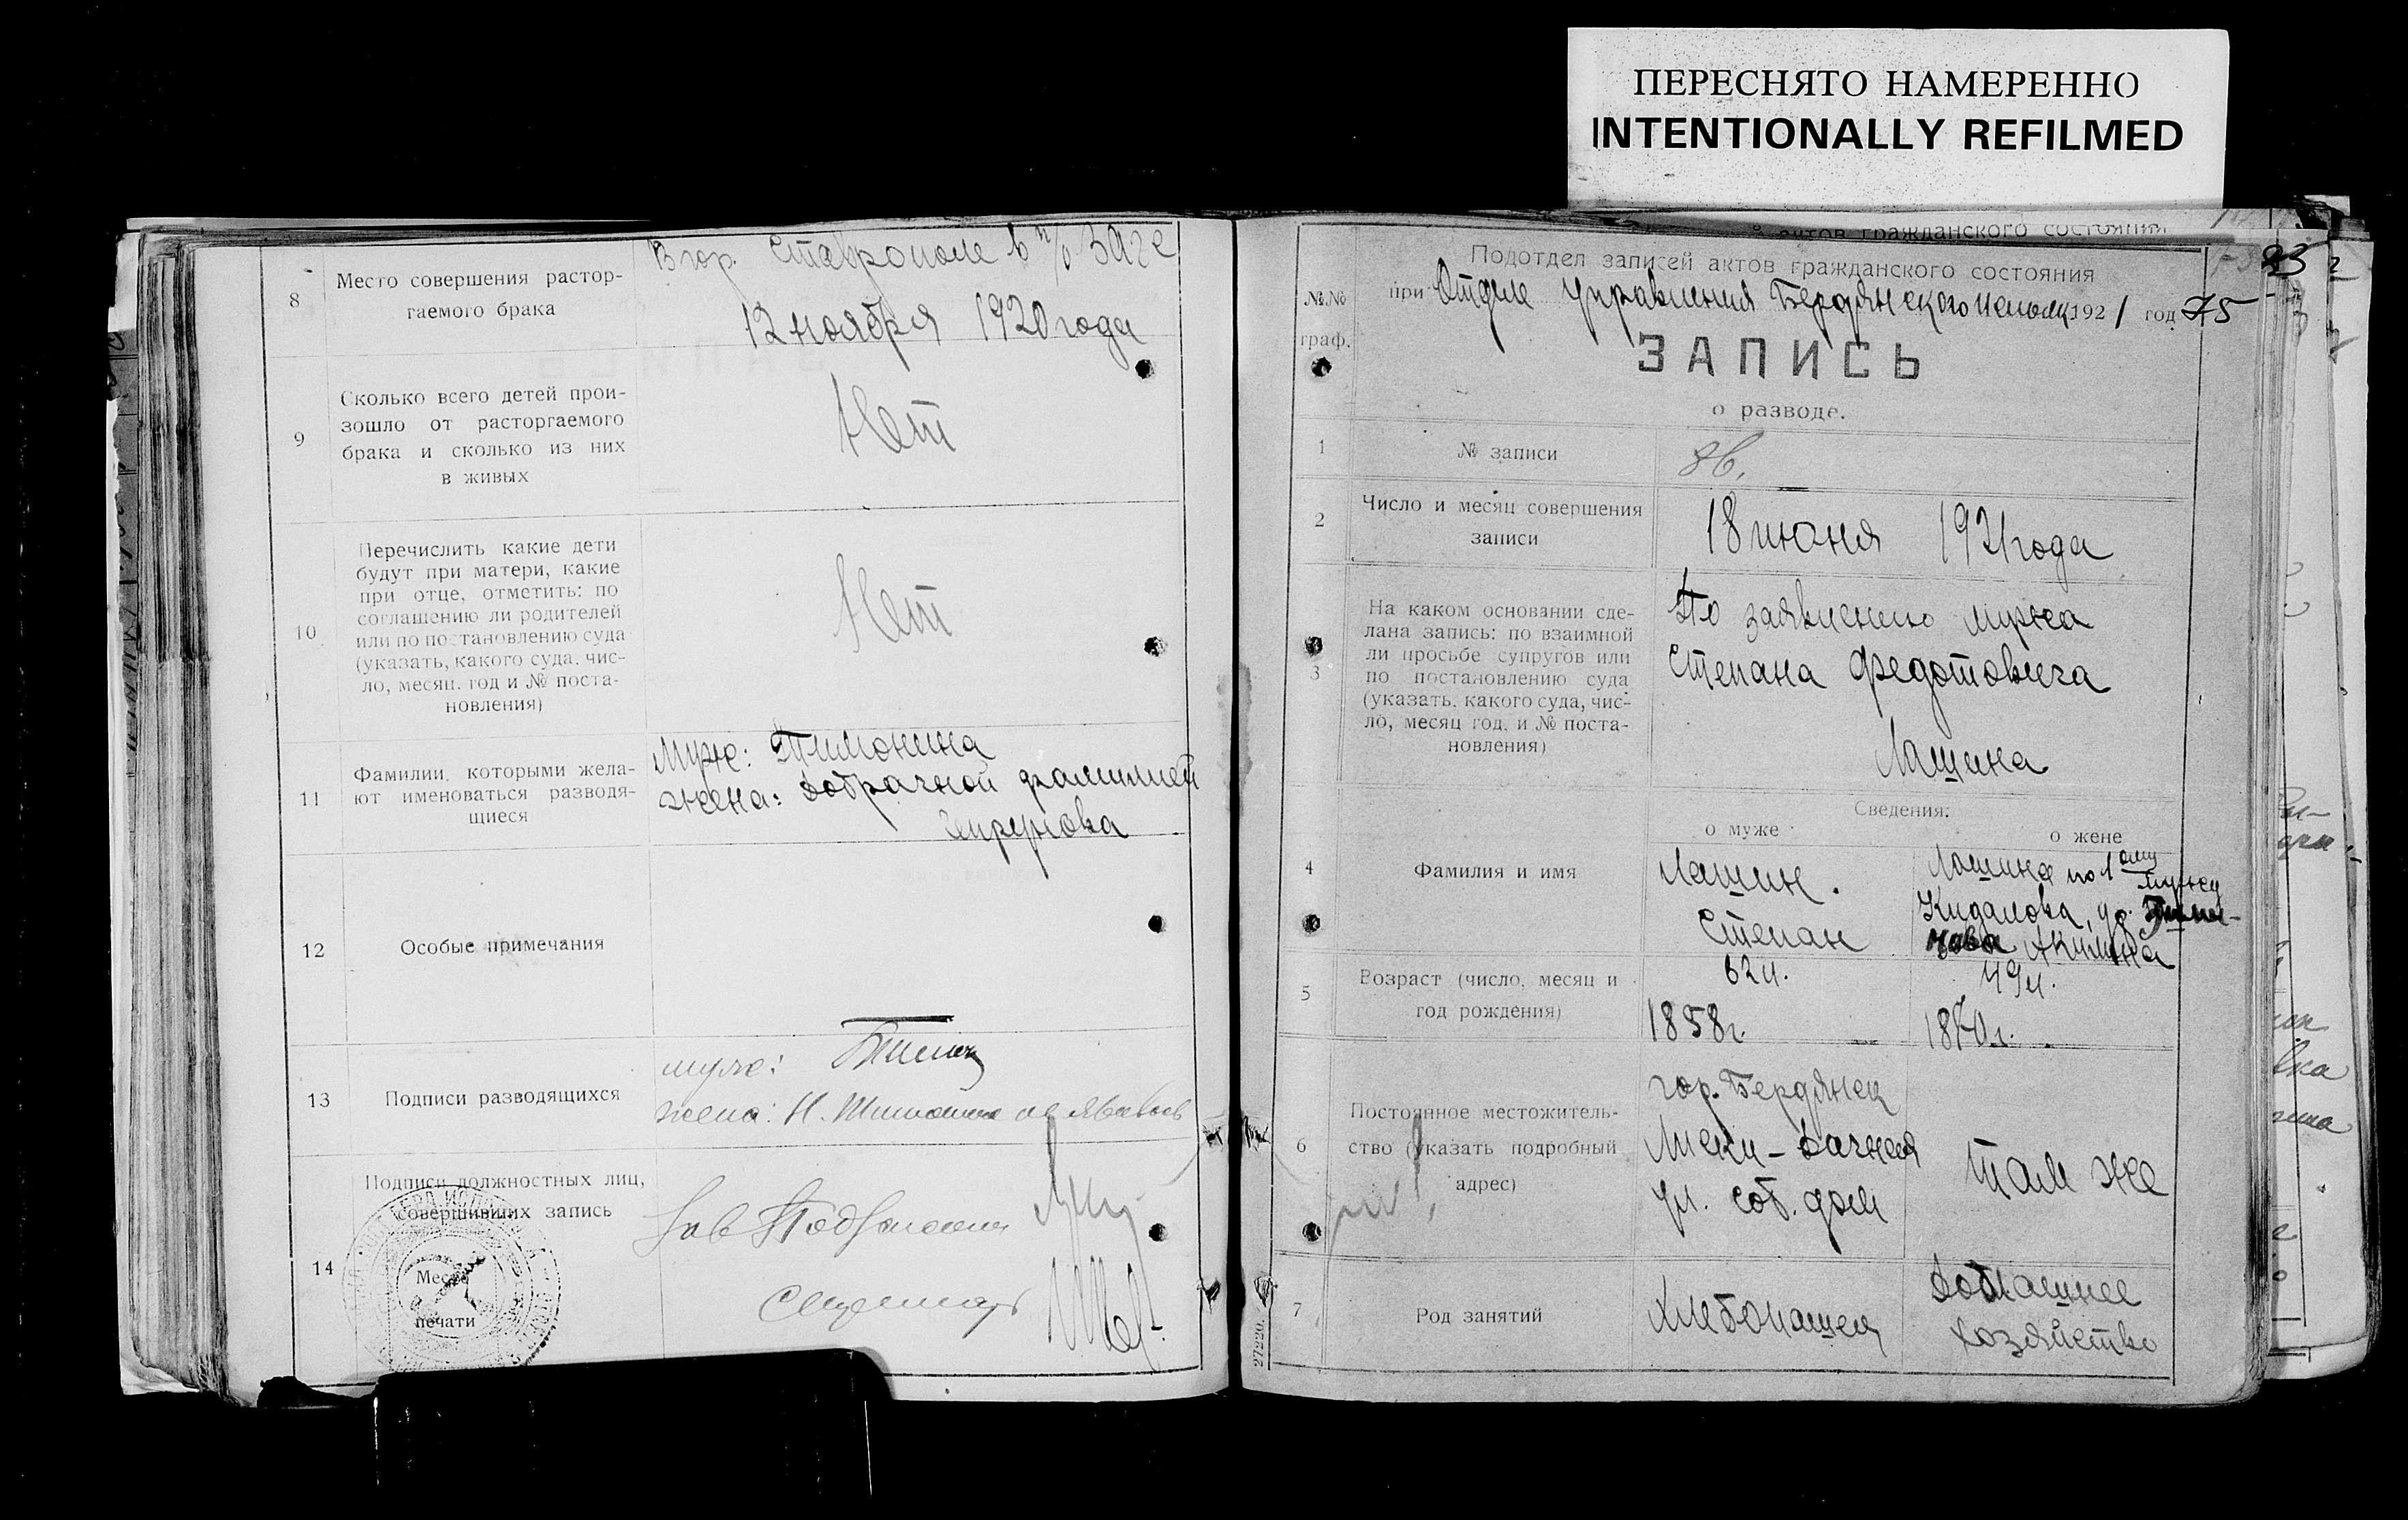 ПЕРЕСНЯТО НАМЕРЕННО
INTENTIONALLY REFILMED
8
Место совершения растор-
гаемого брака
В гор. Ставрополе в п/о Загсе
12 ноября 1920 года
9
Сколько всего детей прои-
зошло от расторгаемого
брака и сколько из них
в живых
Нет
10
Перечислить какие дети
будут при матери, какие
при отце, отметить: по
соглашению ли родителей
или по постановлению суда
(указать, какого суда, чис-
ло, месяц, год и № поста-
новления)
Нет
11
Фамилии, которыми жела-
ют именоваться разводя-
щиеся
Муж: Тимонина
жена: Добрачной фамилией
12
Особые примечания
13
Подписи разводящихся
муже:
жена: Н.
14
Подписи должностных лиц,
совершивших запись
Место
печати
Зав
Секретарь
Подотдел записей актов гражданского состояния
при Отделе Управления Бердянского Исполк. 1921 год 75
№№
граф.
ЗАПИСЬ
о разводе.
1
№ записи
2
Число и месяц совершения
записи
18 июня 1921 года
3
На каком основании сде-
лана запись: по взаимной
ли просьбе супругов или
по постановлению суда
(указать, какого суда, чис-
ло, месяц год, и № поста-
новления)
По заявлению мужа
Степана Федотовича
Лашина
Сведения:
о муже
о жене
4
Фамилия и имя
Лашин.
Степан
Лашина по 1ому мужу
Кидалова, др.
Акилина
5
Возраст (число, месяц и
год рождения)
62 л.
1858 г.
49 л.
1870 г.
6
Постоянное местожитель-
ство (указать подробный
адрес)
гор. Бердянск
Лиски-Дачная
ул. соб. дом
Там же
7
Род занятий
Хлебопашец
Домашнее
хозяйство
27220